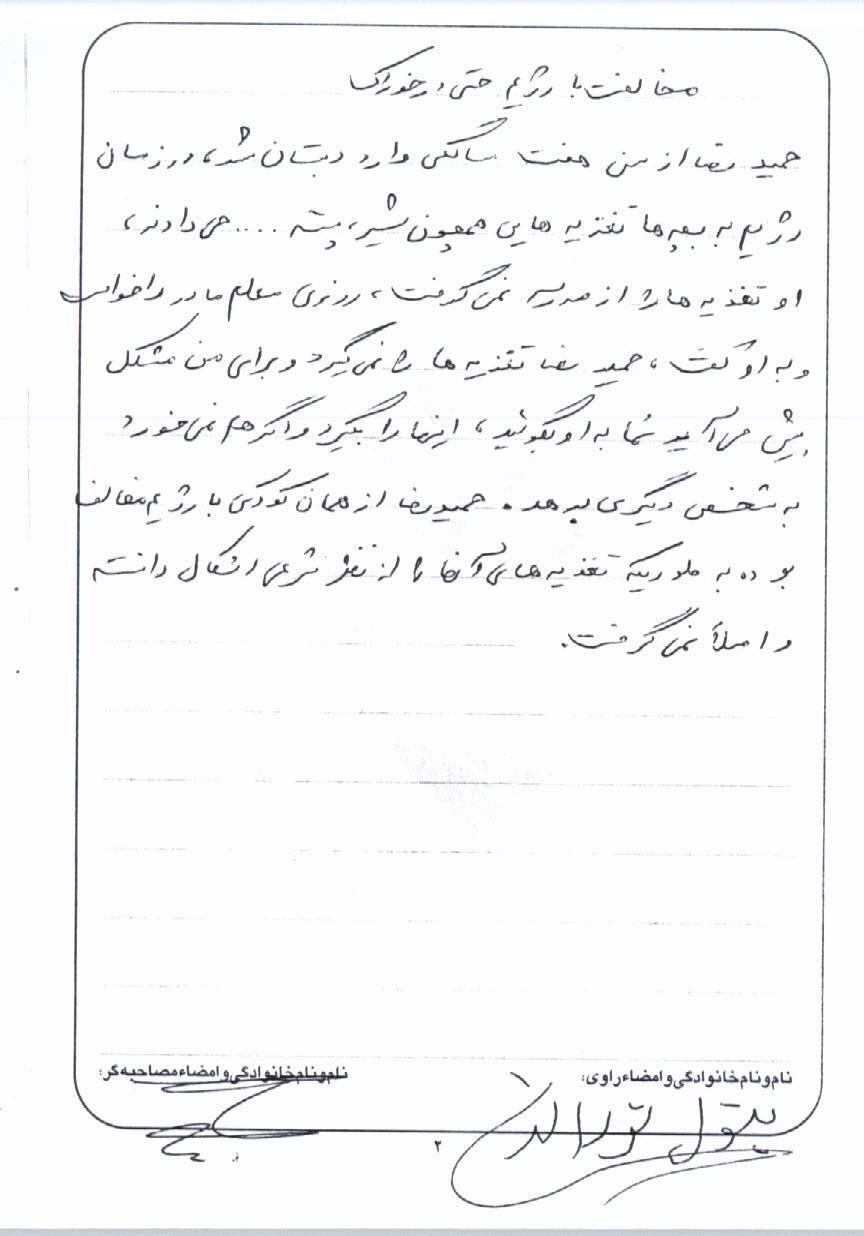 مخالفت با رژیم حتی در خوراک
حمید رضا از سن هفت سالگی وارد دبستان شد، در زمان
رژیم به بچه ها تغذیه هایی همچون شیر، پسته .... می دادند،
او تغذیه ها را از مدرسه نمی گرفت، روزی معلم مادر را خواست
و به او گفت، حمید رضا تغذیه ها را نمی گیرد و برای من مشکل
پیش می آید شما به او بگوئید، اینها را بگیرد و اگر هم نمی خورد
به شخص دیگری بدهد. حمیدرضا از همان کودکی با رژیم مخالف
بوده به طوریکه تغذیه های آنها را از نظر شرعی اشکال دانسته
و اصلاً نمی گرفت.
نام و نام خانوادگی و امضاء راوی:
نام و نام خانوادگی و امضاء مصاحبه گر:
بتول
۲